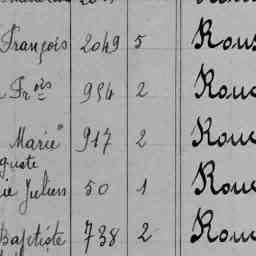 François 2049 5 Rous
Fr.ois 954 2 Rou
Marie 917 2 Rou
guste
ie Julien 50 1 Rou
Baptiste 738 2 Rou